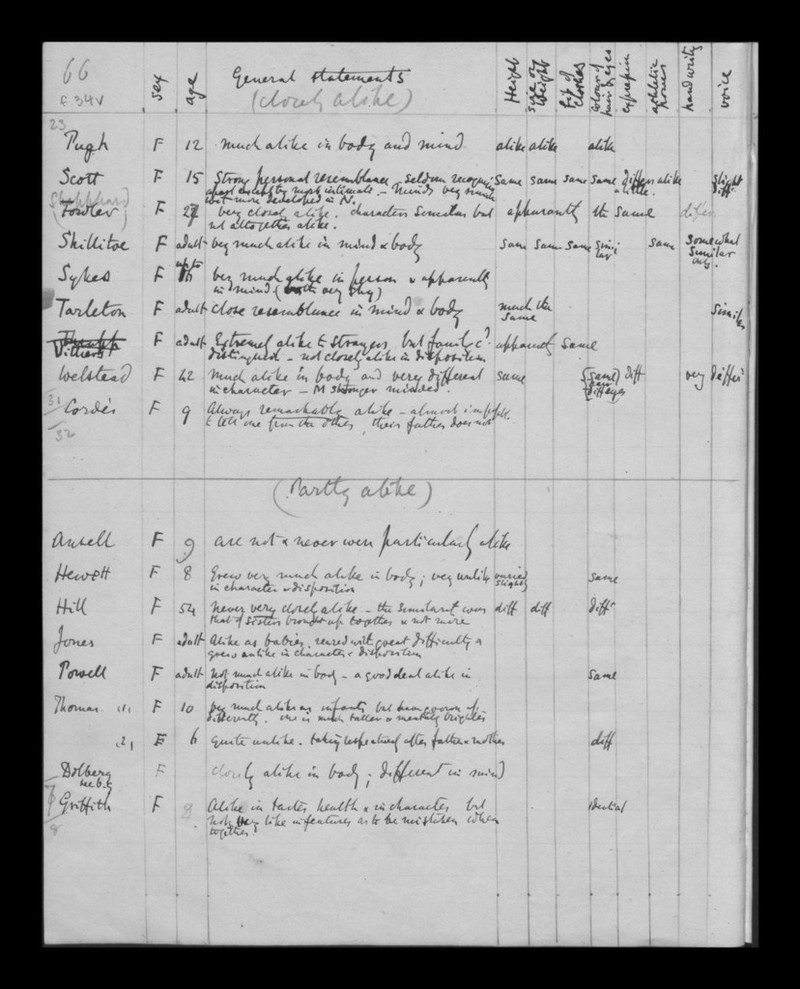 66
f. 34v
sex
age
General statements
(closely alike)
Height
size or Weight
Size of Clothes
colour of hair & eyes
expression
athletic power
handwriting
voice
23
Pugh F 12 much alike in body and mind. alike alike alike
Scott F 15 Strong personal resemblance, seldom recognised same same same same differs a little alike slight diff.
apart except by most intimate. - minds very similar
but more developed in N.
(Sheppheard)
Fowler F 27 very closely alike. characters similar but apparently the same differ
not altogether alike.
Skillitoe F adult very much alike in mind & body same same same similar same somewhat similar only.
Sykes F up to 16 very much alike in person & apparently
in mind (both very shy)
Tarleton F adult close resemblance in mind & body much the same similar
Villiers F adult Extremely alike to strangers, but family c? apparently same
distinguish - not closely alike in disposition
Welstead F 42 Much alike in body and very different same (same) hair diff eyes diff very differ
in character - M stronger minded.
31
Cordes F 9 Always remarkably alike - almost impossible
to tell one from the other, their father does not
32
(Partly alike)
Ansell F 9 are not & never were particularly alike
Hewett F 8 Grew very much alike in body; very unlike varied slightly same
in character & disposition
Hill F 54 never very closely alike - the similarity was diff diff diff
that of sisters brought up together & not more
Jones F adult Alike as babies, reared with great difficulty &
grew unlike in character & disposition
Powell F adult Not much alike in body - a good deal alike in same
disposition
Thomas (1) F 10 very much alike as infants but have grown up
differently. one is much taller & mentally brighter
(2) F 6 quite unlike. taking respectively after father & mother diff
Dolberg F closely alike in body; different in mind
see b.t.
7
Griffith F 8 Alike in tastes health & in character but identical
not very like in features as to be mistaken when
together.
8